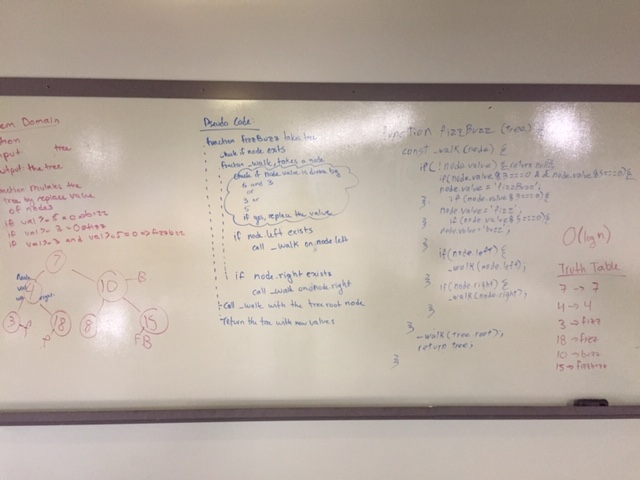 em Domain
tion
put: tree
utput: the tree
unction mutates the
tree by replace value
of nodes
if val % 5 = 0 →
if val % 3 → 0 fizz
if val % 3 and val % 5 = 0 => fizzbuzz
Node
right
10
B
3
18
8
15
FB
Pseudo Code:
function fizzBuzz takes tree
check if node exits
function _walk takes a node
check if node value is divisible by
5 and 3
or
3 or
5
if yes, replace the value
if node.left exists
call _walk on node.left
if node.right exists
call _walk on node.right
call _walk with the tree root node
return the tree with new values
function fizzBuzz (tree) {
const _walk (node) {
if (! node.value) { return null }
if (node.value % 3 === 0 && node.value % 5 === 0) {
node.value = 'fizzBuzz';
} if (node.value % 3 === 0) {
node.value = 'fizz';
} if (node.value % 5 === 0) {
node.value = 'buzz';
}
if (node.left) {
_walk (node.left);
}
if (node.right) {
_walk (node.right);
}
}
_walk (tree.root);
return tree;
}
O(log n)
Truth Table
7 → 7
4 → 4
3 → fizz
18 → fizz
10 → buzz
15 → fizzbuzz